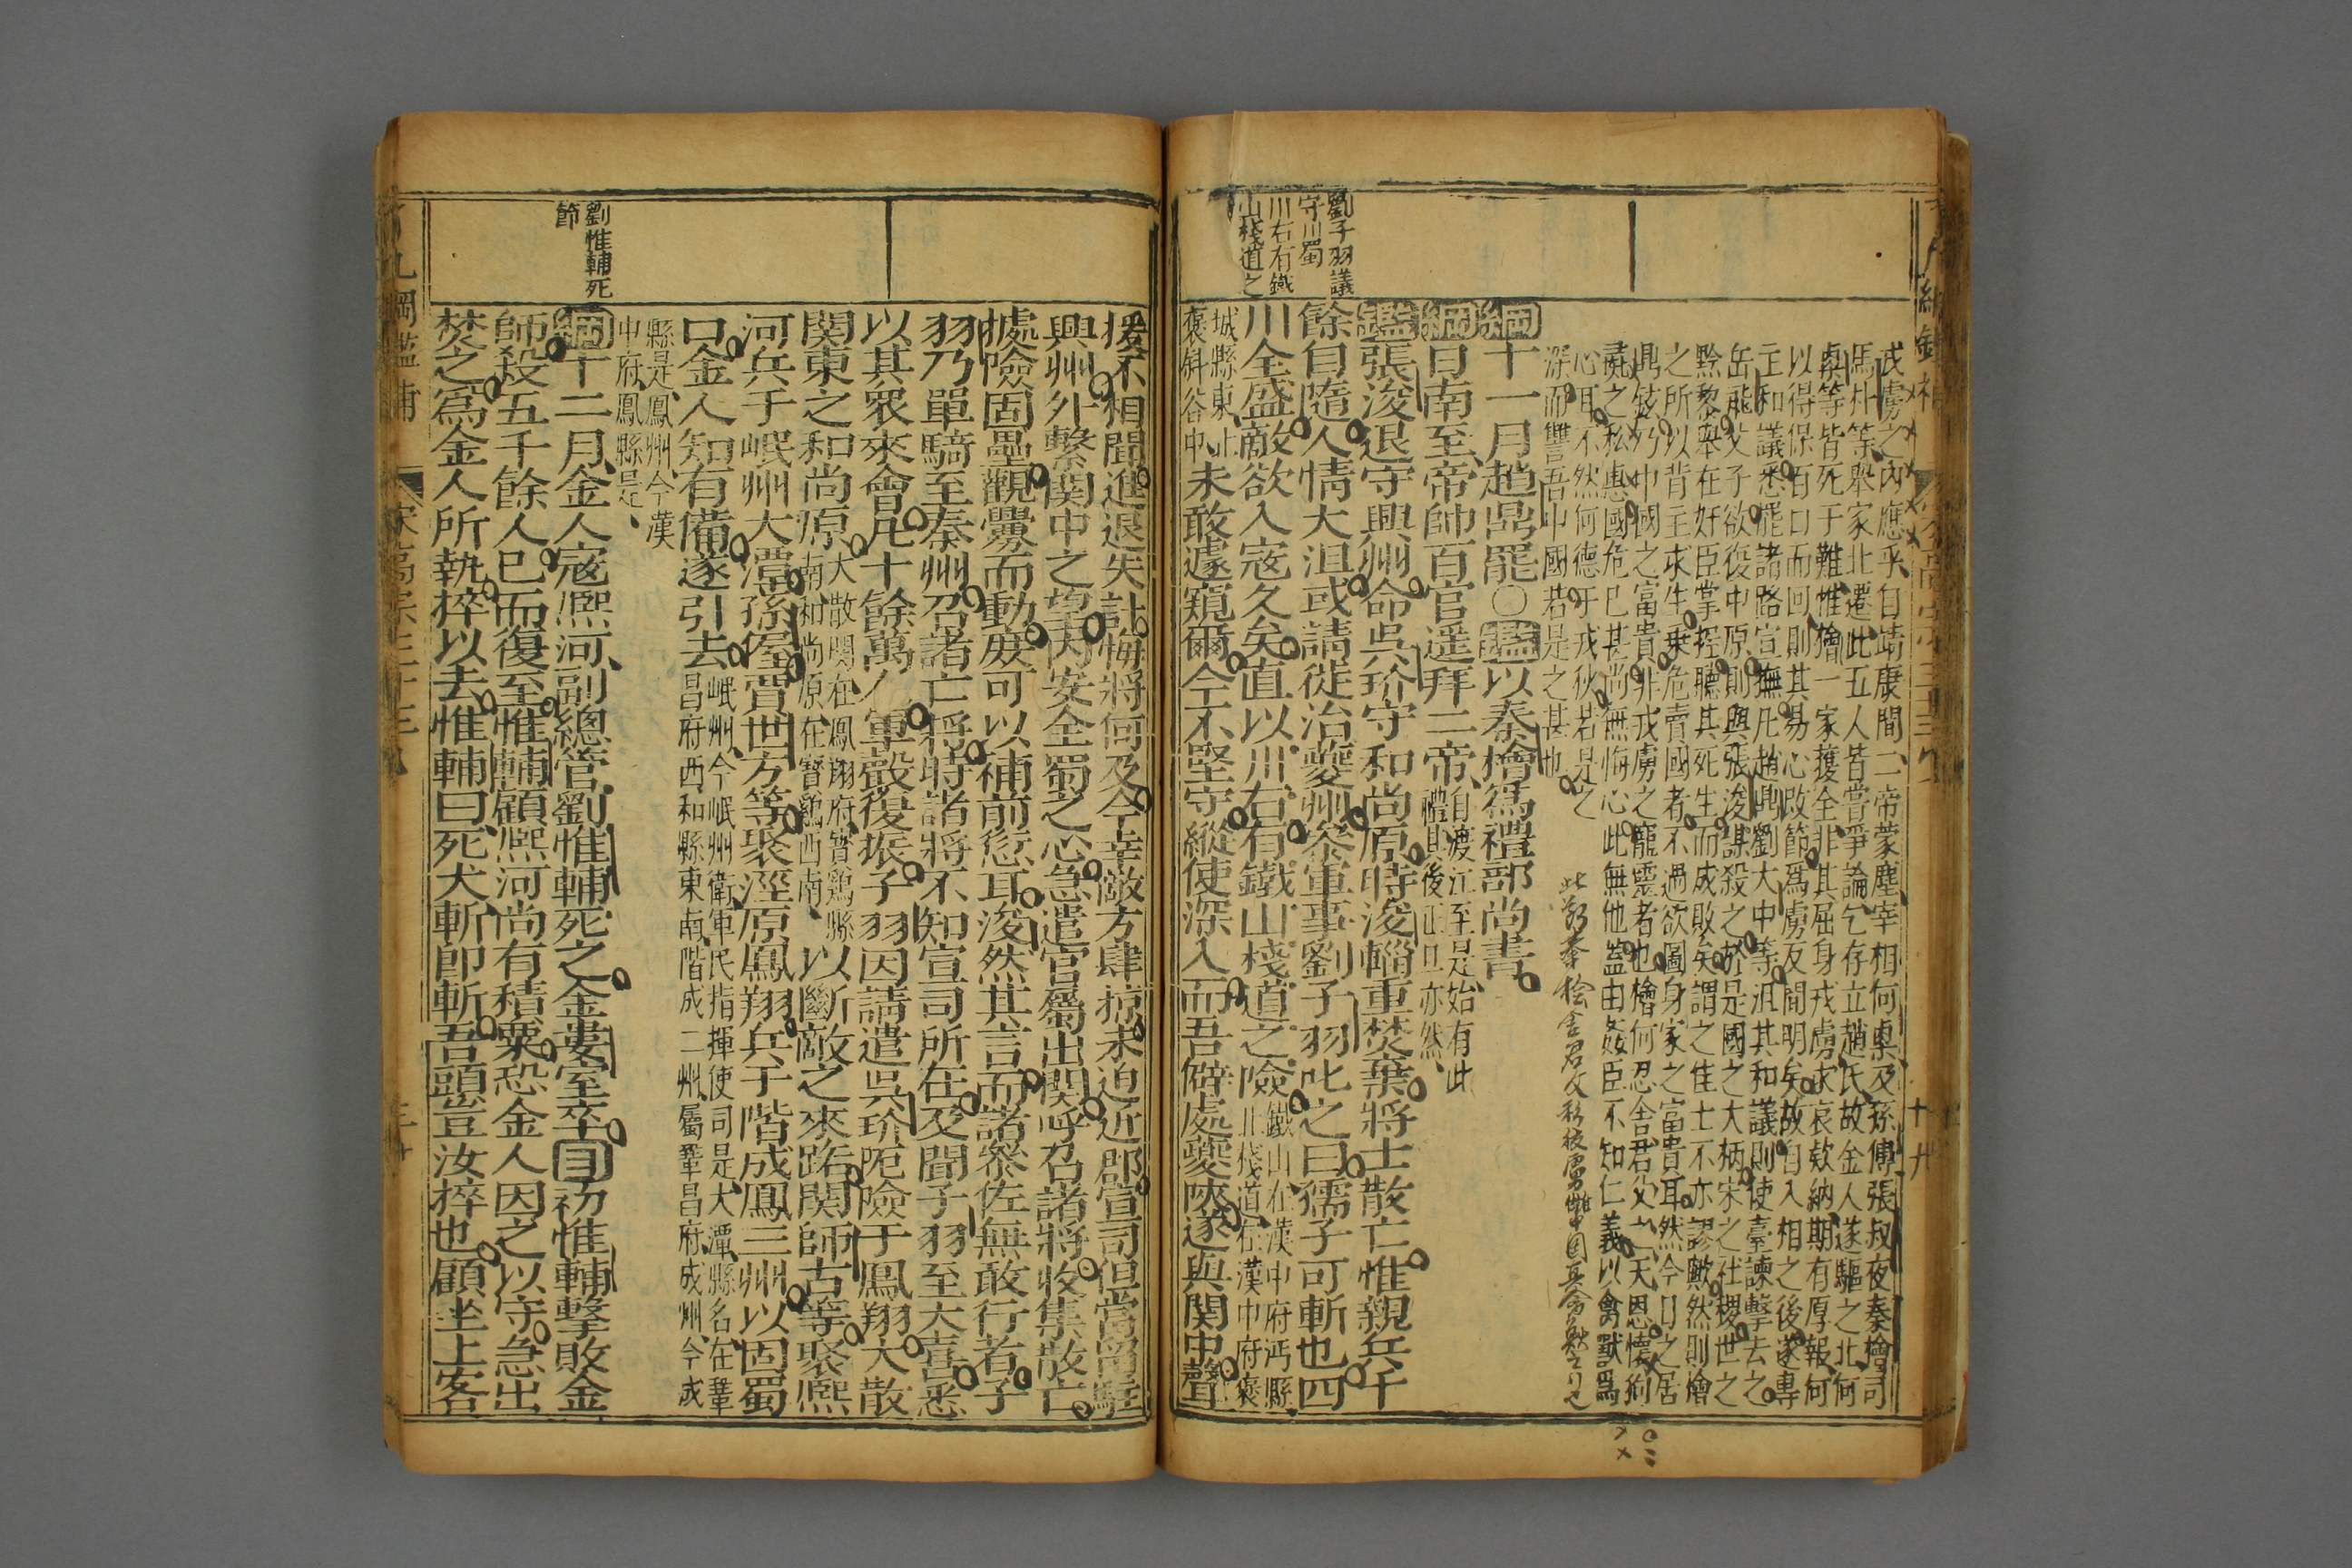 戎虜之內應乎自靖康間二帝蒙塵宰相何㮚及孫傅張叔夜秦檜司
馬朴等舉家北遷此五人皆嘗爭論乞存立趙氏故金人遂驅之北何
㮚等皆死于難惟檜一家獲全非其屈身戎虜求哀欵納期有厚報何
以得保百口而回則其易心改節爲虜反間明矣故自入相之後遂專
主和議悉罷諸路宣撫凡趙鼎劉大中等沮其和議則使臺諫擊去之
岳飛父子欲復中原則與張浚謀殺之於是國之大柄宋之社稷世之
黔黎舉在奸臣掌握聽其死生而成敗矣謂之佳士不亦謬歟然則檜
之所以背主求生乗危賣國者不過欲圖身家之富貴耳然今日之居
鼎鉉乃中國之富貴非戎虜之寵靈者也檜何忍舍君父之天恩懷狥
彘之私惠國危已甚尚無悔心此無他蓋由姦臣不知仁義以禽獸爲
心耳不然何德于戎狄若是之
深而讐吾中國若是之甚也
綱十一月趙鼎罷○鑑以秦檜爲禮部尚書
綱日南至帝帥百官遥拜二帝自渡江至是始有此
禮其後正旦亦然
鑑張浚退守興州命吳玠守和尚原時浚輜重焚棄將士散亡惟親兵千
餘自隨人情大沮或請徙治夔州叅軍事劉子羽叱之曰孺子可斬也四
川全盛敵欲入寇久矣直以川右有鐵山棧道之險鐵山在漢中府沔縣
北棧道在漢中府褒
城縣東北
褒斜谷中未敢遽窺爾今不堅守縱使深入而吾僻處夔陝遂與関中聲
劉子羽議
守川蜀
川右有鐵
山棧道之
援不相聞進退失計悔將何及今幸敵方肆掠未迫近郡宣司但當留駐
興州外繫関中之望內安全蜀之心急遣官屬出関呼召諸將收集散亡
㨿險固壘觀釁而動庻可以補前愆耳浚然其言而諸叅佐無敢行者子
羽乃單騎至秦州召諸亡將時諸將不知宣司所在及聞子羽至大喜悉
以其衆來會凡十餘萬人軍聲復振子羽因請遣吳玠阨險于鳳翔大散
関東之和尚原大散関在鳳翔府寳鷄縣
南和尚原在寳鷄西南以斷敵之來路関師古等聚熈
河兵于岷州大潭孫偓賈世方等聚涇原鳳翔兵于階成鳳三州以固蜀
口金人知有備遂引去岷州今岷州衛軍民指揮使司是大潭縣名在鞏
昌府西和縣東南階成二州屬鞏昌府成州今成
縣是鳳州今漢
中府鳳縣是
綱十二月金人寇熈河副總管劉惟輔死之金婁室卒目初惟輔擊敗金
師殺五千餘人已而復至惟輔顧熈河尚有積粟恐金人因之以守急出
焚之爲金人所執捽以去惟輔曰死犬斬即斬吾頭豈汝捽也顧坐上客
劉惟輔死
節